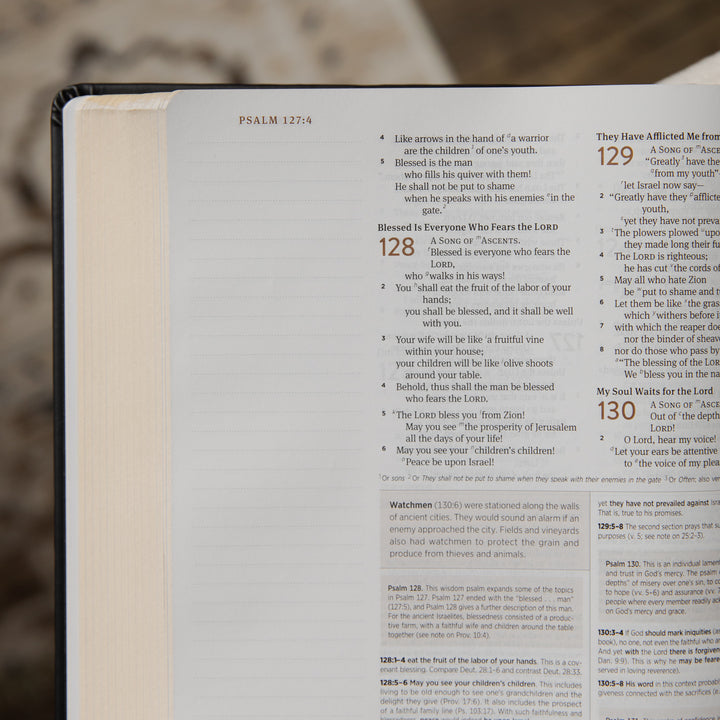 PSALM 127:4
4 Like arrows in the hand of a warrior
are the children of one's youth.
5 Blessed is the man
who fills his quiver with them!
He shall not be put to shame
when he speaks with his enemies in the
gate.2
Blessed Is Everyone Who Fears the LORD
128 A SONG OF ASCENTS.
Blessed is everyone who fears the
LORD,
who walks in his ways!
2 You shall eat the fruit of the labor of your
hands;
you shall be blessed, and it shall be well
with you.
3 Your wife will be like a fruitful vine
within your house;
your children will be like olive shoots
around your table.
4 Behold, thus shall the man be blessed
who fears the LORD.
5 The LORD bless you from Zion!
May you see the prosperity of Jerusalem
all the days of your life!
6 May you see your children's children!
Peace be upon Israel!
They Have Afflicted Me from
129 A SONG OF
"Greatly have they
from my youth"
let Israel now say—
2 "Greatly have they
youth,
yet they have not
3 The plowers plowed upon
they made long their
4 The LORD is righteous;
he has cut the cords of
5 May all who hate Zion
be put to shame and
6 Let them be like the
which withers before
7 with which the reaper
nor the binder of
8 nor do those who pass by
"The blessing of the
We bless you in the
My Soul Waits for the Lord
130 A SONG OF
Out of the
LORD!
2 O Lord, hear my voice!
Let your ears be attentive
to the voice of my
1 Or sons 2 Or They shall not be put to shame when they speak with their enemies in the gate 3 Or Often; also
Watchmen (130:6) were stationed along the walls
of ancient cities. They would sound an alarm if an
enemy approached the city. Fields and vineyards
also had watchmen to protect the grain and
produce from thieves and animals.
Psalm 128. This wisdom psalm expands some of the topics
in Psalm 127. Psalm 127 ended with the "blessed . . . man"
(127:5), and Psalm 128 gives a further description of this man.
For the ancient Israelites, blessedness consisted of a produc-
tive farm, with a faithful wife and children around the table
together (see note on Prov. 10:4).
128:1–4 eat the fruit of the labor of your hands. This is a cov-
enant blessing. Compare Deut. 28:1–6 and contrast Deut. 28:33.
128:5–6 May you see your children's children. This includes
living to be old enough to see one's grandchildren and the
delight they give (Prov. 17:6). It also includes the prospect
of a faithful family line (Ps. 103:17). With such faithfulness and
yet they have not prevailed against
That is, true to his promises.
129:5–8 The second section prays that
purposes (v. 5; see note on 25:2–3).
Psalm 130. This is an individual
and trust in God's mercy. The psalm
depths" of misery over one's sin, to
to hope (vv. 5–6) and assurance (vv.
people where every member readily
on God's mercy and grace.
130:3–4 If God should mark iniquities
book), no one, not even the faithful who
And yet with the Lord there is
Dan. 9:9). This is why he may be
served in loving reverence).
130:5–8 His word in this context
giveness connected with the sacrifices